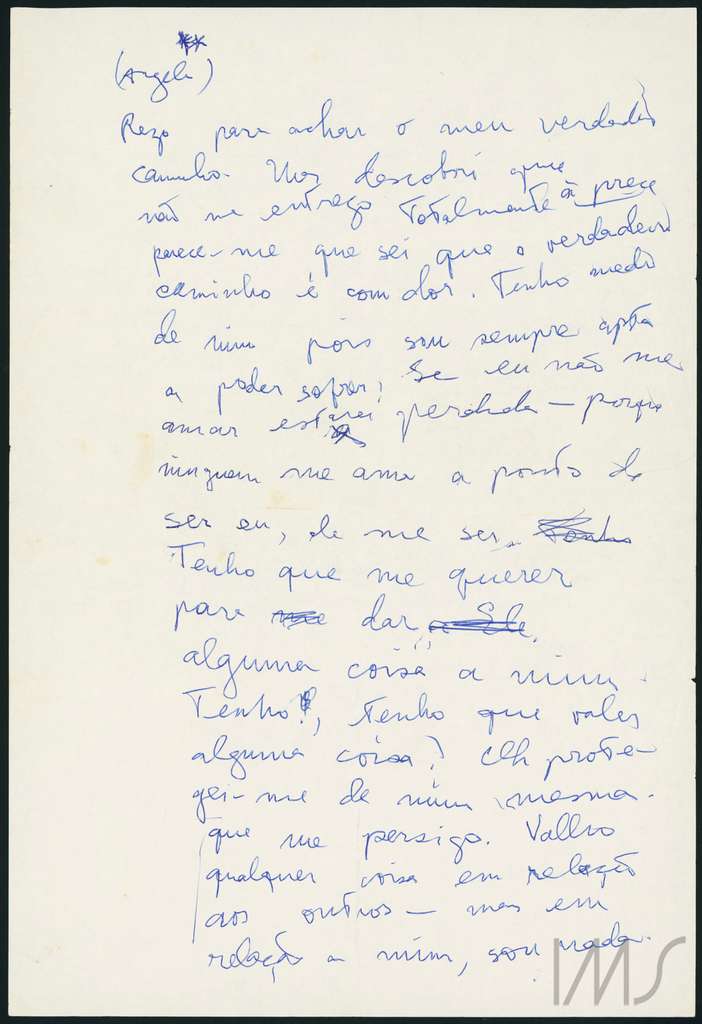 (Angela)
Rezo para achar o meu verdadeiro
caminho. Mas descobri que
não me entrego totalmente à prece
parece-me que sei que o verdadeiro
caminho é com dor. Tenho medo
de mim pois sou sempre apta
a poder sofrer. Se eu não me
amar estarei perdida — porque
ninguem me ama a ponto de
ser eu, de me ser.
Tenho que me querer
para dar
alguma coisa a mim.
Tenho, tenho que valer
alguma coisa? Oh prote-
gei-me de mim mesma.
que me persigo. Valho
qualquer coisa em relação
aos outros — mas em
relação a mim, sou nada.
IMS